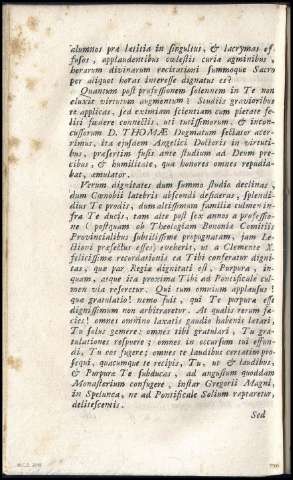 alumnos præ lætitia in singultus, & lacrymas ef-
fusos, applaudentibus cœlestis curiæ agminibus,
horarum divinarum recitationi summoque Sacro
per aliquot horas interesse dignatus es?
Quantum post professionem solemnem in Te non
eluxit virtutum augmentum? Studiis gravioribus
te applicas, sed eximiam scientiam cum pietate fe-
lici fœdere connectis, uti tutissimorum, & incon-
cussorum D. THOMÆ Dogmatum sectator acer-
rimus, ita ejusdem Angelici Doctoris in virtuti-
bus, præsertim fusis ante studium ad Deum pre-
cibus, & humilitate, qua honores omnes repudia-
bat, æmulator.
Verum dignitates dum summo studio declinas,
dum Cœnobii latebris abscondi desideras, splendi-
dius Te prodis, dum altissimum familiæ culmen in-
fra Te ducis, tam alte post sex annos a professio-
ne (postquam ob Theologiam Bononiæ Comitiis
Provincialibus subtilissime propugnatam, jam Le-
ctioni præfectus esses) eveheris, ut a Clemente X.
felicissimæ recordationis ea Tibi conferatur digni-
tas, quæ par Regiæ dignitati est, Purpura, in-
quam, atque ita proxima Tibi ad Pontificale cul-
men via referetur. Qui tum omnium applausus!
quæ gratulatio! nemo fuit, qui Te purpura esse
dignissimum non arbitraretur. At qualis rerum fa-
cies! omnes omnino laxatis gaudio habenis lætari,
Tu solus gemere: omnes tibi gratulari, Tu gra-
tulationes respuere; omnes in occursum tui effun-
di, Tu eos fugere; omnes te laudibus certatim pro-
sequi, quacumque te recipis, Tu, ut & laudibus,
& Purpuræ Te subducas, ad angustum quoddam
Monasterium confugere, instar Gregorii Magni,
in Spelunca, ne ad Pontificale Solium raptaretur,
delitescentis.
Sed